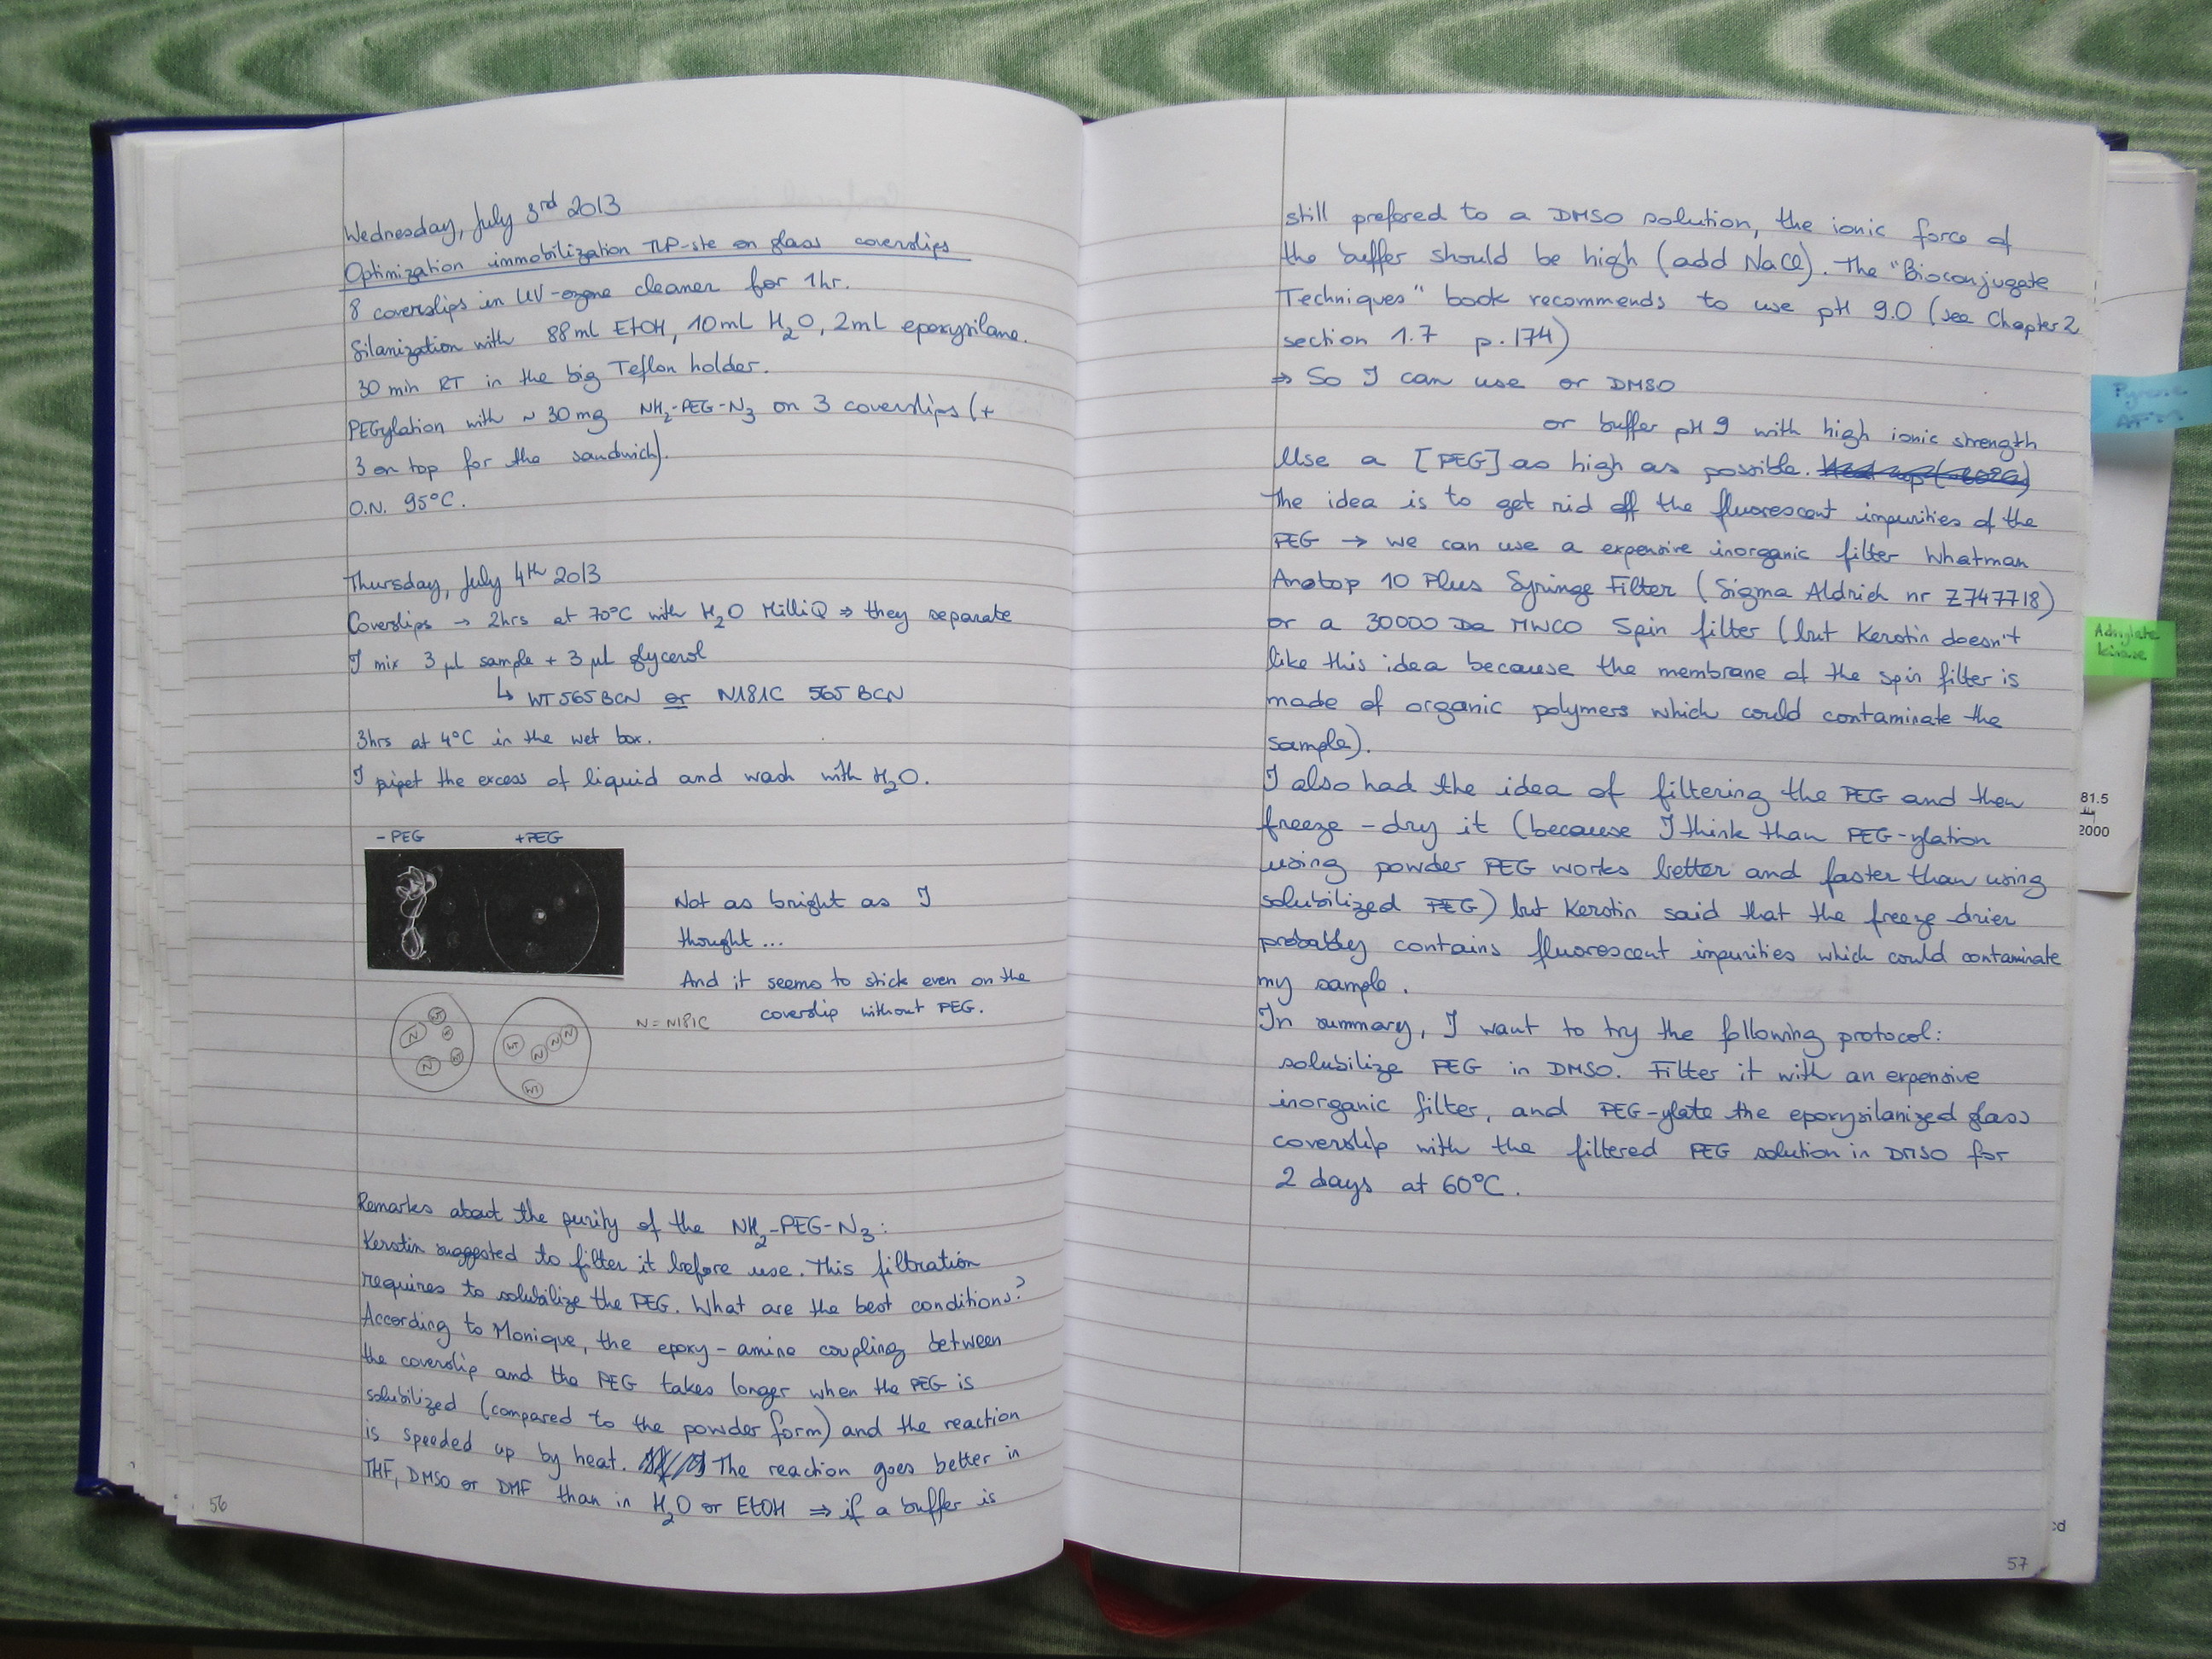 Wednesday, July 3rd 2013
Optimization immobilization TLP-ste on glass coverslips
8 coverslips in UV-ozone cleaner for 1hr.
Silanization with 88ml EtOH, 10mL H2O, 2mL epoxysilane.
30 min RT in the big Teflon holder.
PEGylation with ~ 30mg NH2-PEG-N3 on 3 coverslips (+
3 on top for the sandwich).
O.N. 95°C.
Thursday, July 4th 2013
Coverslips → 2hrs at 70°C with H2O MilliQ ⇒ they separate
I mix 3 µL sample + 3 µL glycerol
↳ WT 565 BCN or N181C 565 BCN
3hrs at 4°C in the wet box.
I pipet the excess of liquid and wash with H2O.
- PEG +PEG
Not as bright as I
thought...
And it seems to stick even on the
coverslip without PEG.
N = N181C
WT
N
WT
N
WT
N
N
N
WT
Remarks about the purity of the NH2-PEG-N3:
Kerstin suggested to filter it before use. This filtration
requires to solubilize the PEG. What are the best conditions?
According to Monique, the epoxy-amine coupling between
the coverslip and the PEG takes longer when the PEG is
solubilized (compared to the powder form) and the reaction
is speeded up by heat. The reaction goes better in
THF, DMSO or DMF than in H2O or EtOH ⇒ if a buffer is
56
still prefered to a DMSO solution, the ionic force of
the buffer should be high (add NaCl). The "Bioconjugate
Techniques" book recommends to use pH 9.0 (see Chapter 2
section 1.7 p.174)
⇒ So I can use or DMSO
or buffer pH 9 with high ionic strength
Use a [PEG] as high as possible.
The idea is to get rid off the fluorescent impurities of the
PEG → we can use a expensive inorganic filter Whatman
Anotop 10 Plus Syringe Filter (Sigma Aldrich nr Z747718)
or a 30000 Da MWCO Spin filter (but Kerstin doesn't
like this idea because the membrane of the spin filter is
made of organic polymers which could contaminate the
sample).
I also had the idea of filtering the PEG and then
freeze-dry it (because I think than PEG-ylation
using powder PEG works better and faster than using
solubilized PEG) but Kerstin said that the freeze-drier
probably contains fluorescent impurities which could contaminate
my sample.
In summary, I want to try the following protocol:
solubilize PEG in DMSO. Filter it with an expensive
inorganic filter, and PEG-ylate the epoxysilanized glass
coverslip with the filtered PEG solution in DMSO for
2 days at 60°C.
57
Adenylate
kinase
81.5
2000
cd